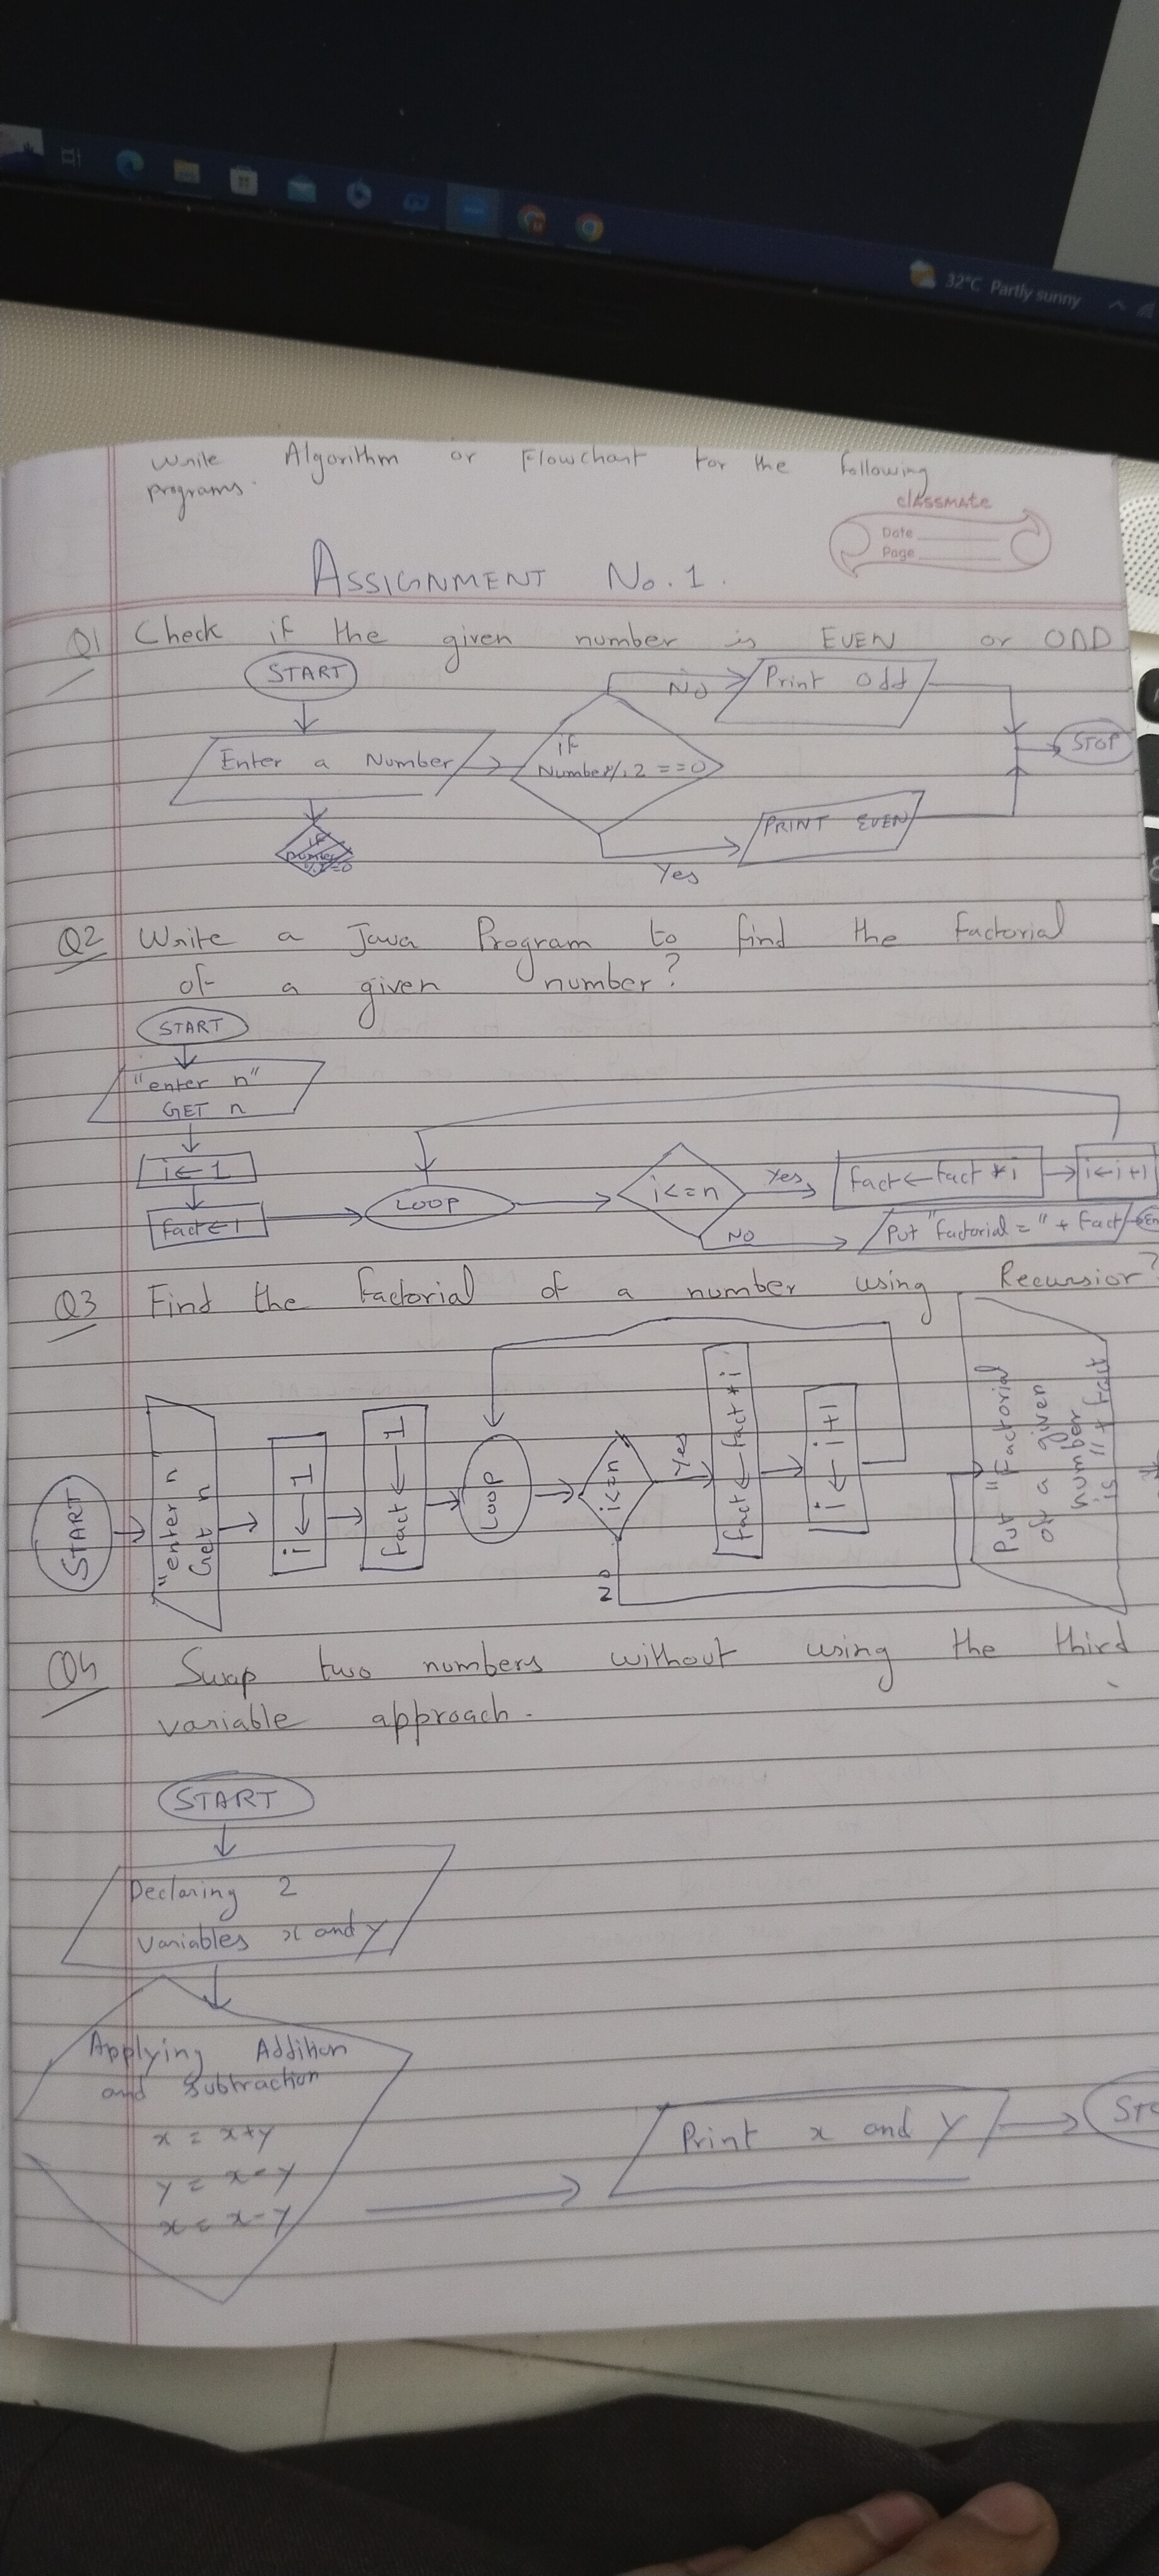 32°C Partly sunny
Write Algorithm or Flowchart for the following
programs.
classmate
Date
Page
ASSIGNMENT No. 1.
Q1 Check if the given number is EVEN or ODD
START
No
Print Odd
Enter a Number
if
Number % 2 == 0
STOP
PRINT EVEN
if
number
%2=0
Yes
Q2 Write a Java Program to find the factorial
of a given number?
START
"enter n"
GET n
i ← 1
fact ← 1
LOOP
i<=n
Yes
fact ← fact * i
i ← i+1
NO
Put "Factorial = " + fact
En
Q3 Find the factorial of a number using Recursior?
START
"enter n
Get n
i ← 1
fact ← 1
LOOP
i<=n
Yes
fact ← fact * i
i ← i+1
No
Put "Factorial
of a given
number
is " + fact
Q4 Swap two numbers without using the third
variable approach.
START
Declaring 2
variables x and y
Applying Addition
and Subtraction
x = x+y
y = x-y
x = x-y
Print x and y
STO